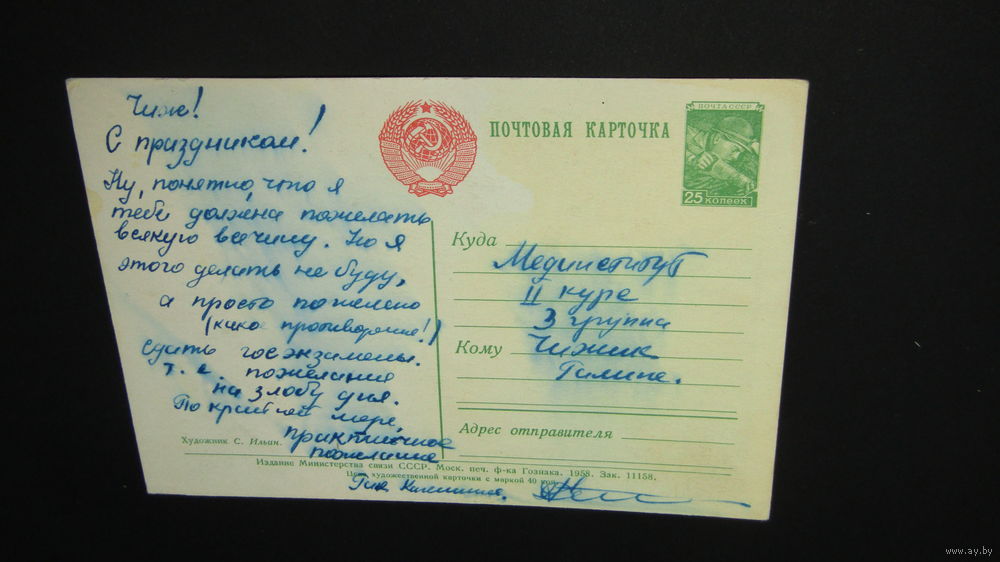 Чиж!
С праздником!
Ну, понятно, что я
тебе должна пожелать
всякую всячину. Но я
этого делать не буду,
а просто пожелаю
( противоречие!)
сдать госэкзамены.
т. е. пожелание
на злобу дня.
По крайней мере,
практичное
пожелание
ПОЧТОВАЯ КАРТОЧКА
ПОЧТА СССР
25 КОПЕЕК
Куда
Мединститут
II курс
3 группа
Кому Чижик
Галине.
Адрес отправителя
Художник С. Ильин.
Издание Министерства связи СССР. Моск. печ. ф-ка Гознака. 1958. Зак. 11158.
Цена художественной карточки с маркой 40 коп.
www.ay.by